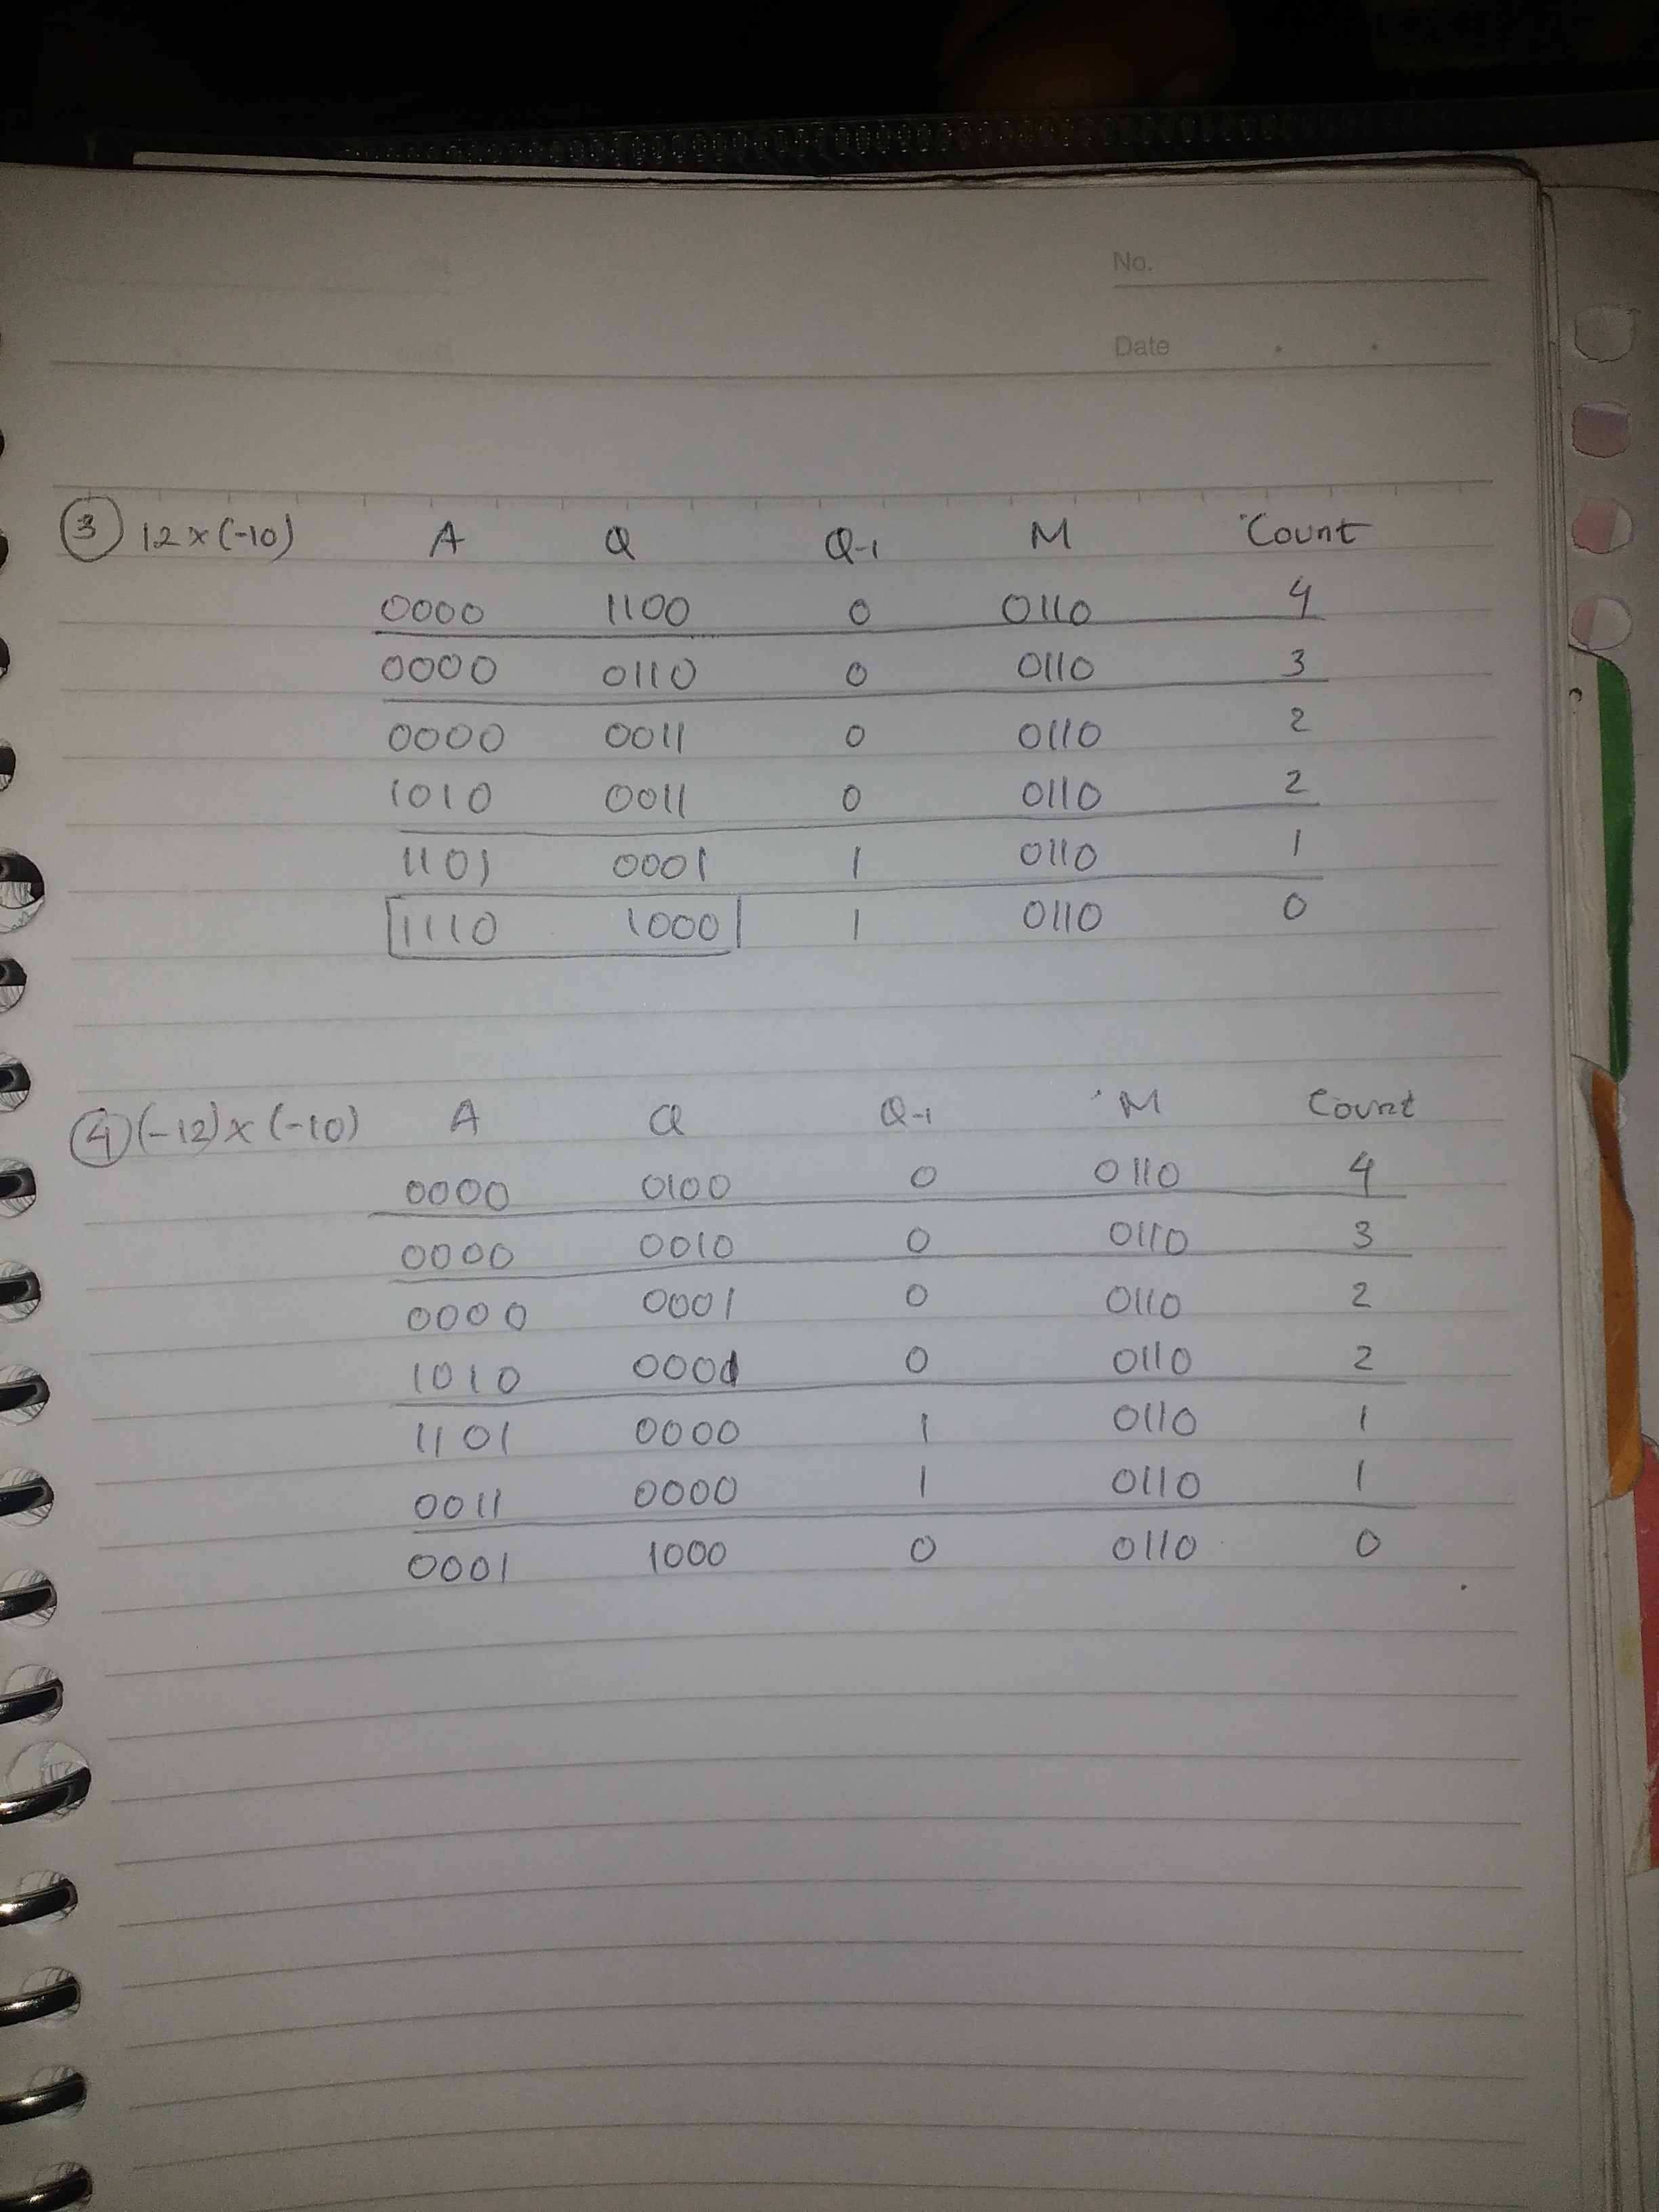 No.
Date
③ 12 x (-10) A Q Q-1 M Count
0000 1100 0 0110 4
0000 0110 0 0110 3
0000 0011 0 0110 2
1010 0011 0 0110 2
1101 0001 1 0110 1
1110 1000 1 0110 0
④ (-12) x (-10) A Q Q-1 M Count
0000 0100 0 0110 4
0000 0010 0 0110 3
0000 0001 0 0110 2
1010 0001 0 0110 2
1101 0000 1 0110 1
0011 0000 1 0110 1
0001 1000 0 0110 0